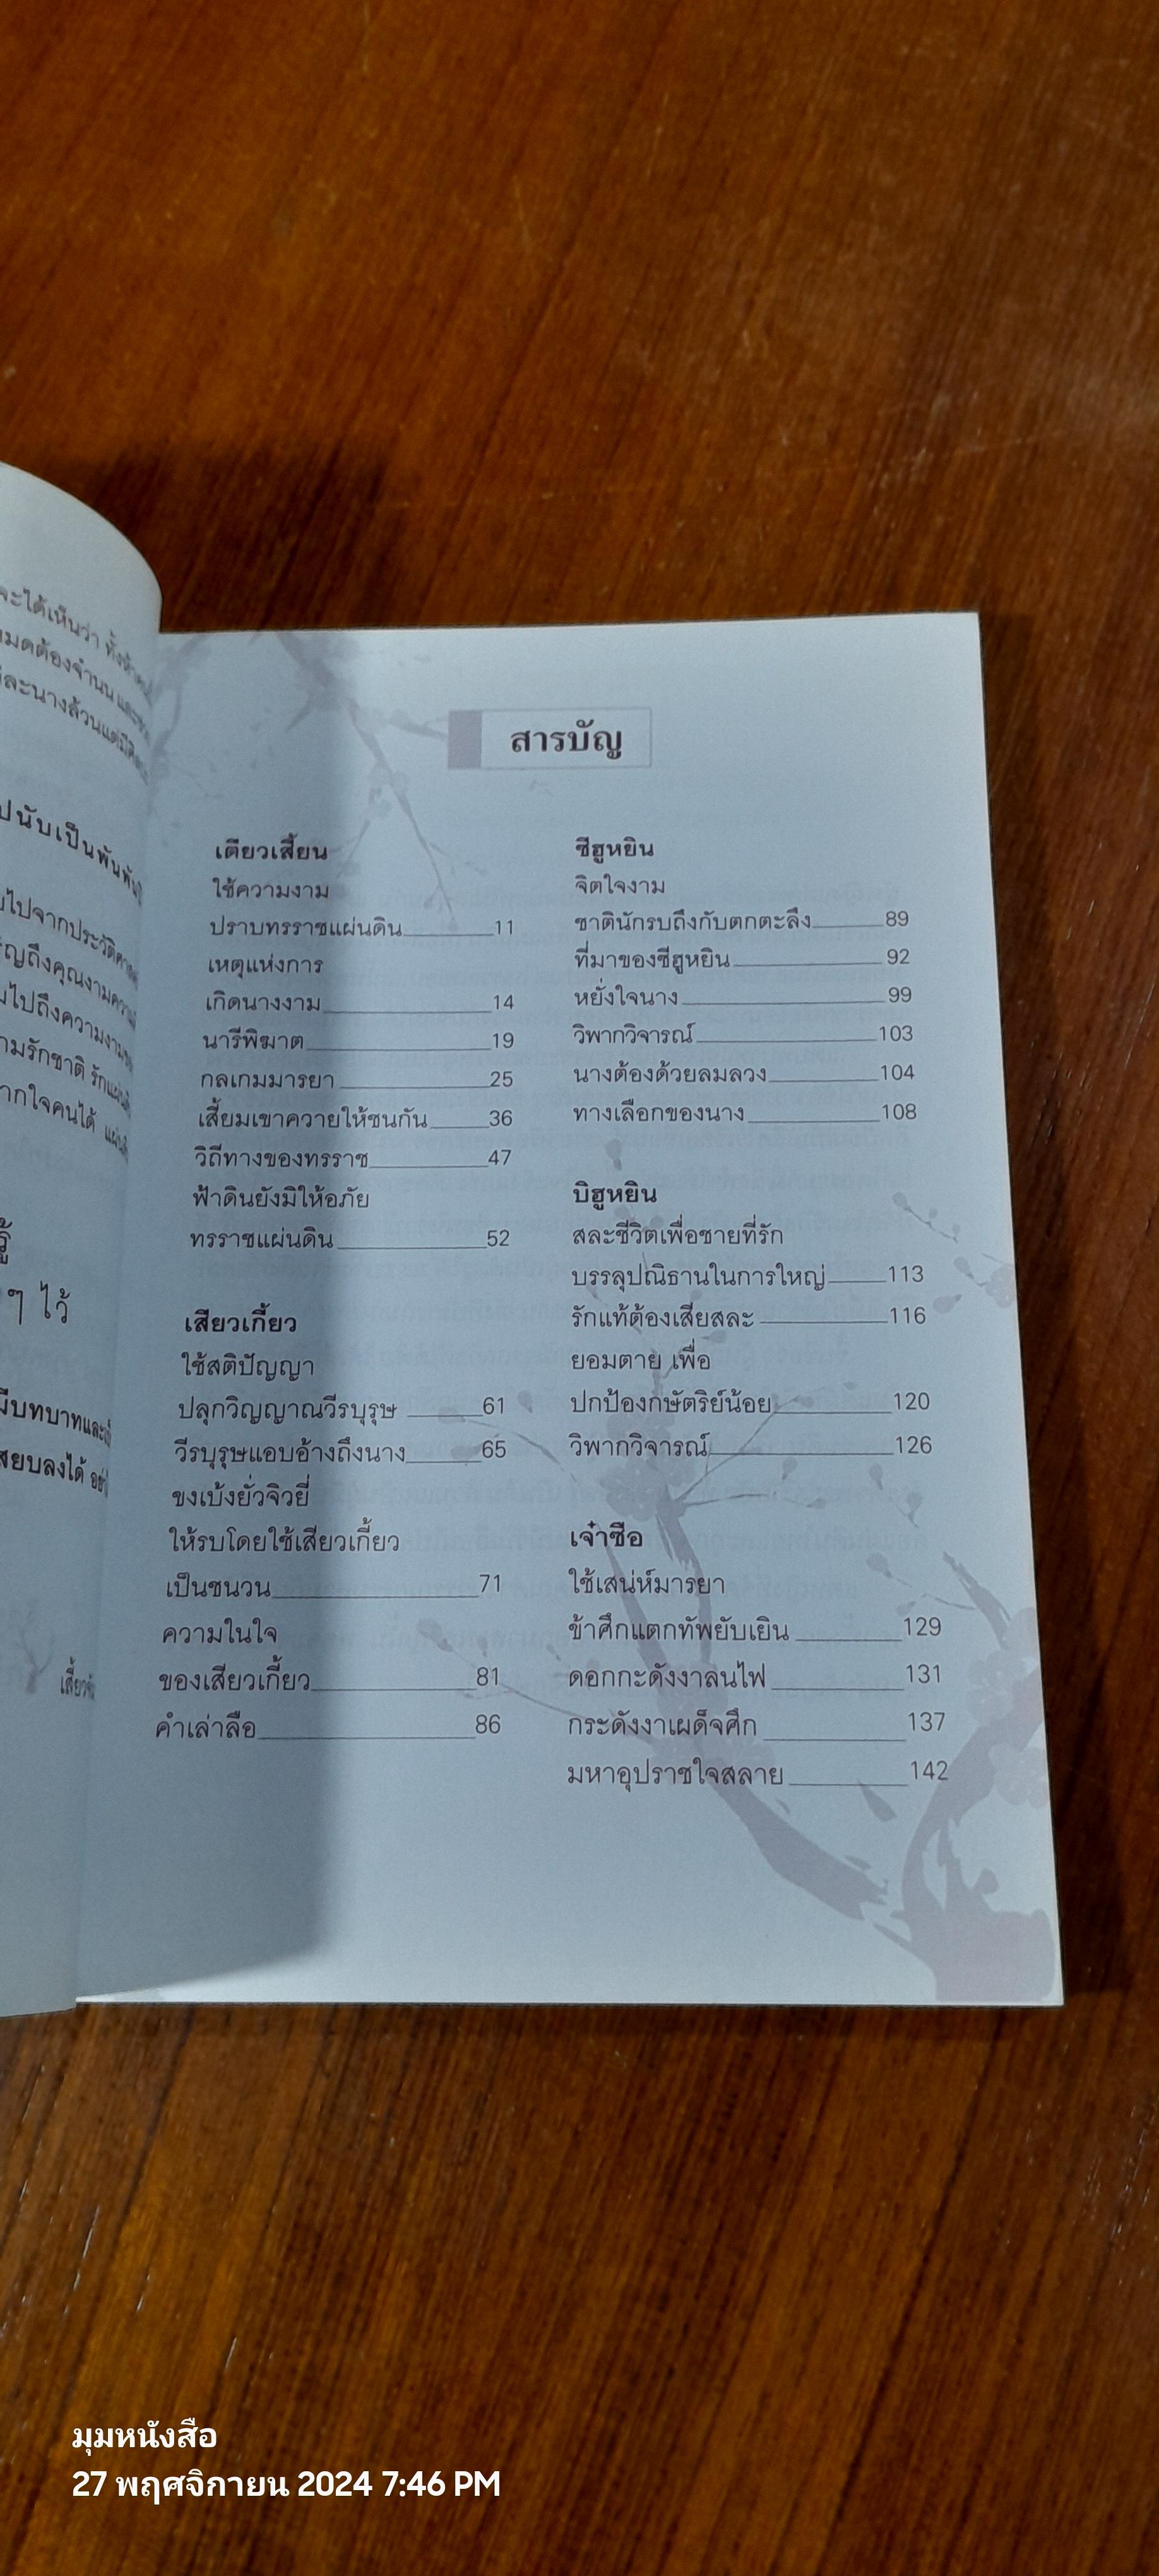 จะได้เห็นว่า
มดต้องจำนน
ละนางล้วนแต่มี
ปนับเป็นพัน
ไปจากประวัติศาสตร์
ถึงคุณงามความ
ไปถึงความงาม
ามรักชาติ รักแผ่นดิน
ากใจคนได้
รู้
ๆ ไว้
มีบทบาทและ
สยบลงได้
สารบัญ
เตียวเสี้ยน
ใช้ความงาม
ปราบทรราชแผ่นดิน 11
เหตุแห่งการ
เกิดนางงาม 14
นารีพิฆาต 19
กลเกมมารยา 25
เสี้ยมเขาควายให้ชนกัน 36
วิถีทางของทรราช 47
ฟ้าดินยังมิให้อภัย
ทรราชแผ่นดิน 52
เสียวเกี้ยว
ใช้สติปัญญา
ปลุกวิญญาณวีรบุรุษ 61
วีรบุรุษแอบอ้างถึงนาง 65
ขงเบ้งยั่วจิวยี่
ให้รบโดยใช้เสียวเกี้ยว
เป็นชนวน 71
ความในใจ
ของเสียวเกี้ยว 81
คำเล่าลือ 86
ซีฮูหยิน
จิตใจงาม
ชาตินักรบถึงกับตกตะลึง 89
ที่มาของซีฮูหยิน 92
หยั่งใจนาง 99
วิพากวิจารณ์ 103
นางต้องด้วยลมลวง 104
ทางเลือกของนาง 108
บิฮูหยิน
สละชีวิตเพื่อชายที่รัก
บรรลุปณิธานในการใหญ่ 113
รักแท้ต้องเสียสละ 116
ยอมตาย เพื่อ
ปกป้องกษัตริย์น้อย 120
วิพากวิจารณ์ 126
เจ๋าซือ
ใช้เสน่ห์มารยา
ข้าศึกแตกทัพยับเยิน 129
ดอกกะดังงาลนไฟ 131
กระดังงาเผด็จศึก 137
มหาอุปราชใจสลาย 142
มุมหนังสือ
27 พฤศจิกายน 2024 7:46 PM